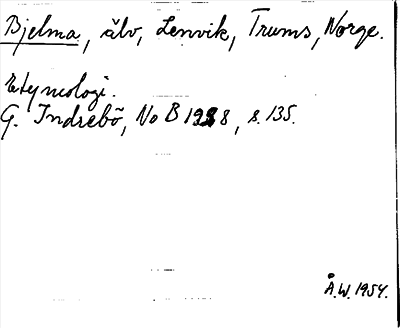 Bjelma, älv, Lenvik, Trums, Norge.
Etymologi.
G. Indrebö, NoB 1938, s. 135.
Å.W. 1954.